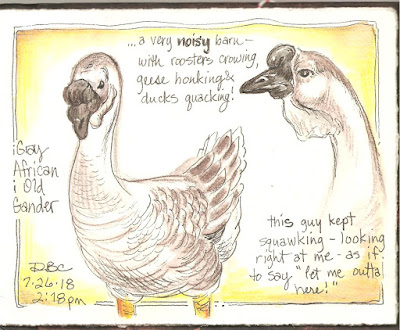 ...a very noisy barn-
with roosters crowing,
geese honking &
ducks quacking!
¡Gray
African
¡ Old
Gander
DBC
7·26·18
2:18pm
this guy kept
squawking - looking
right at me - as if
to say "let me outta
here!"